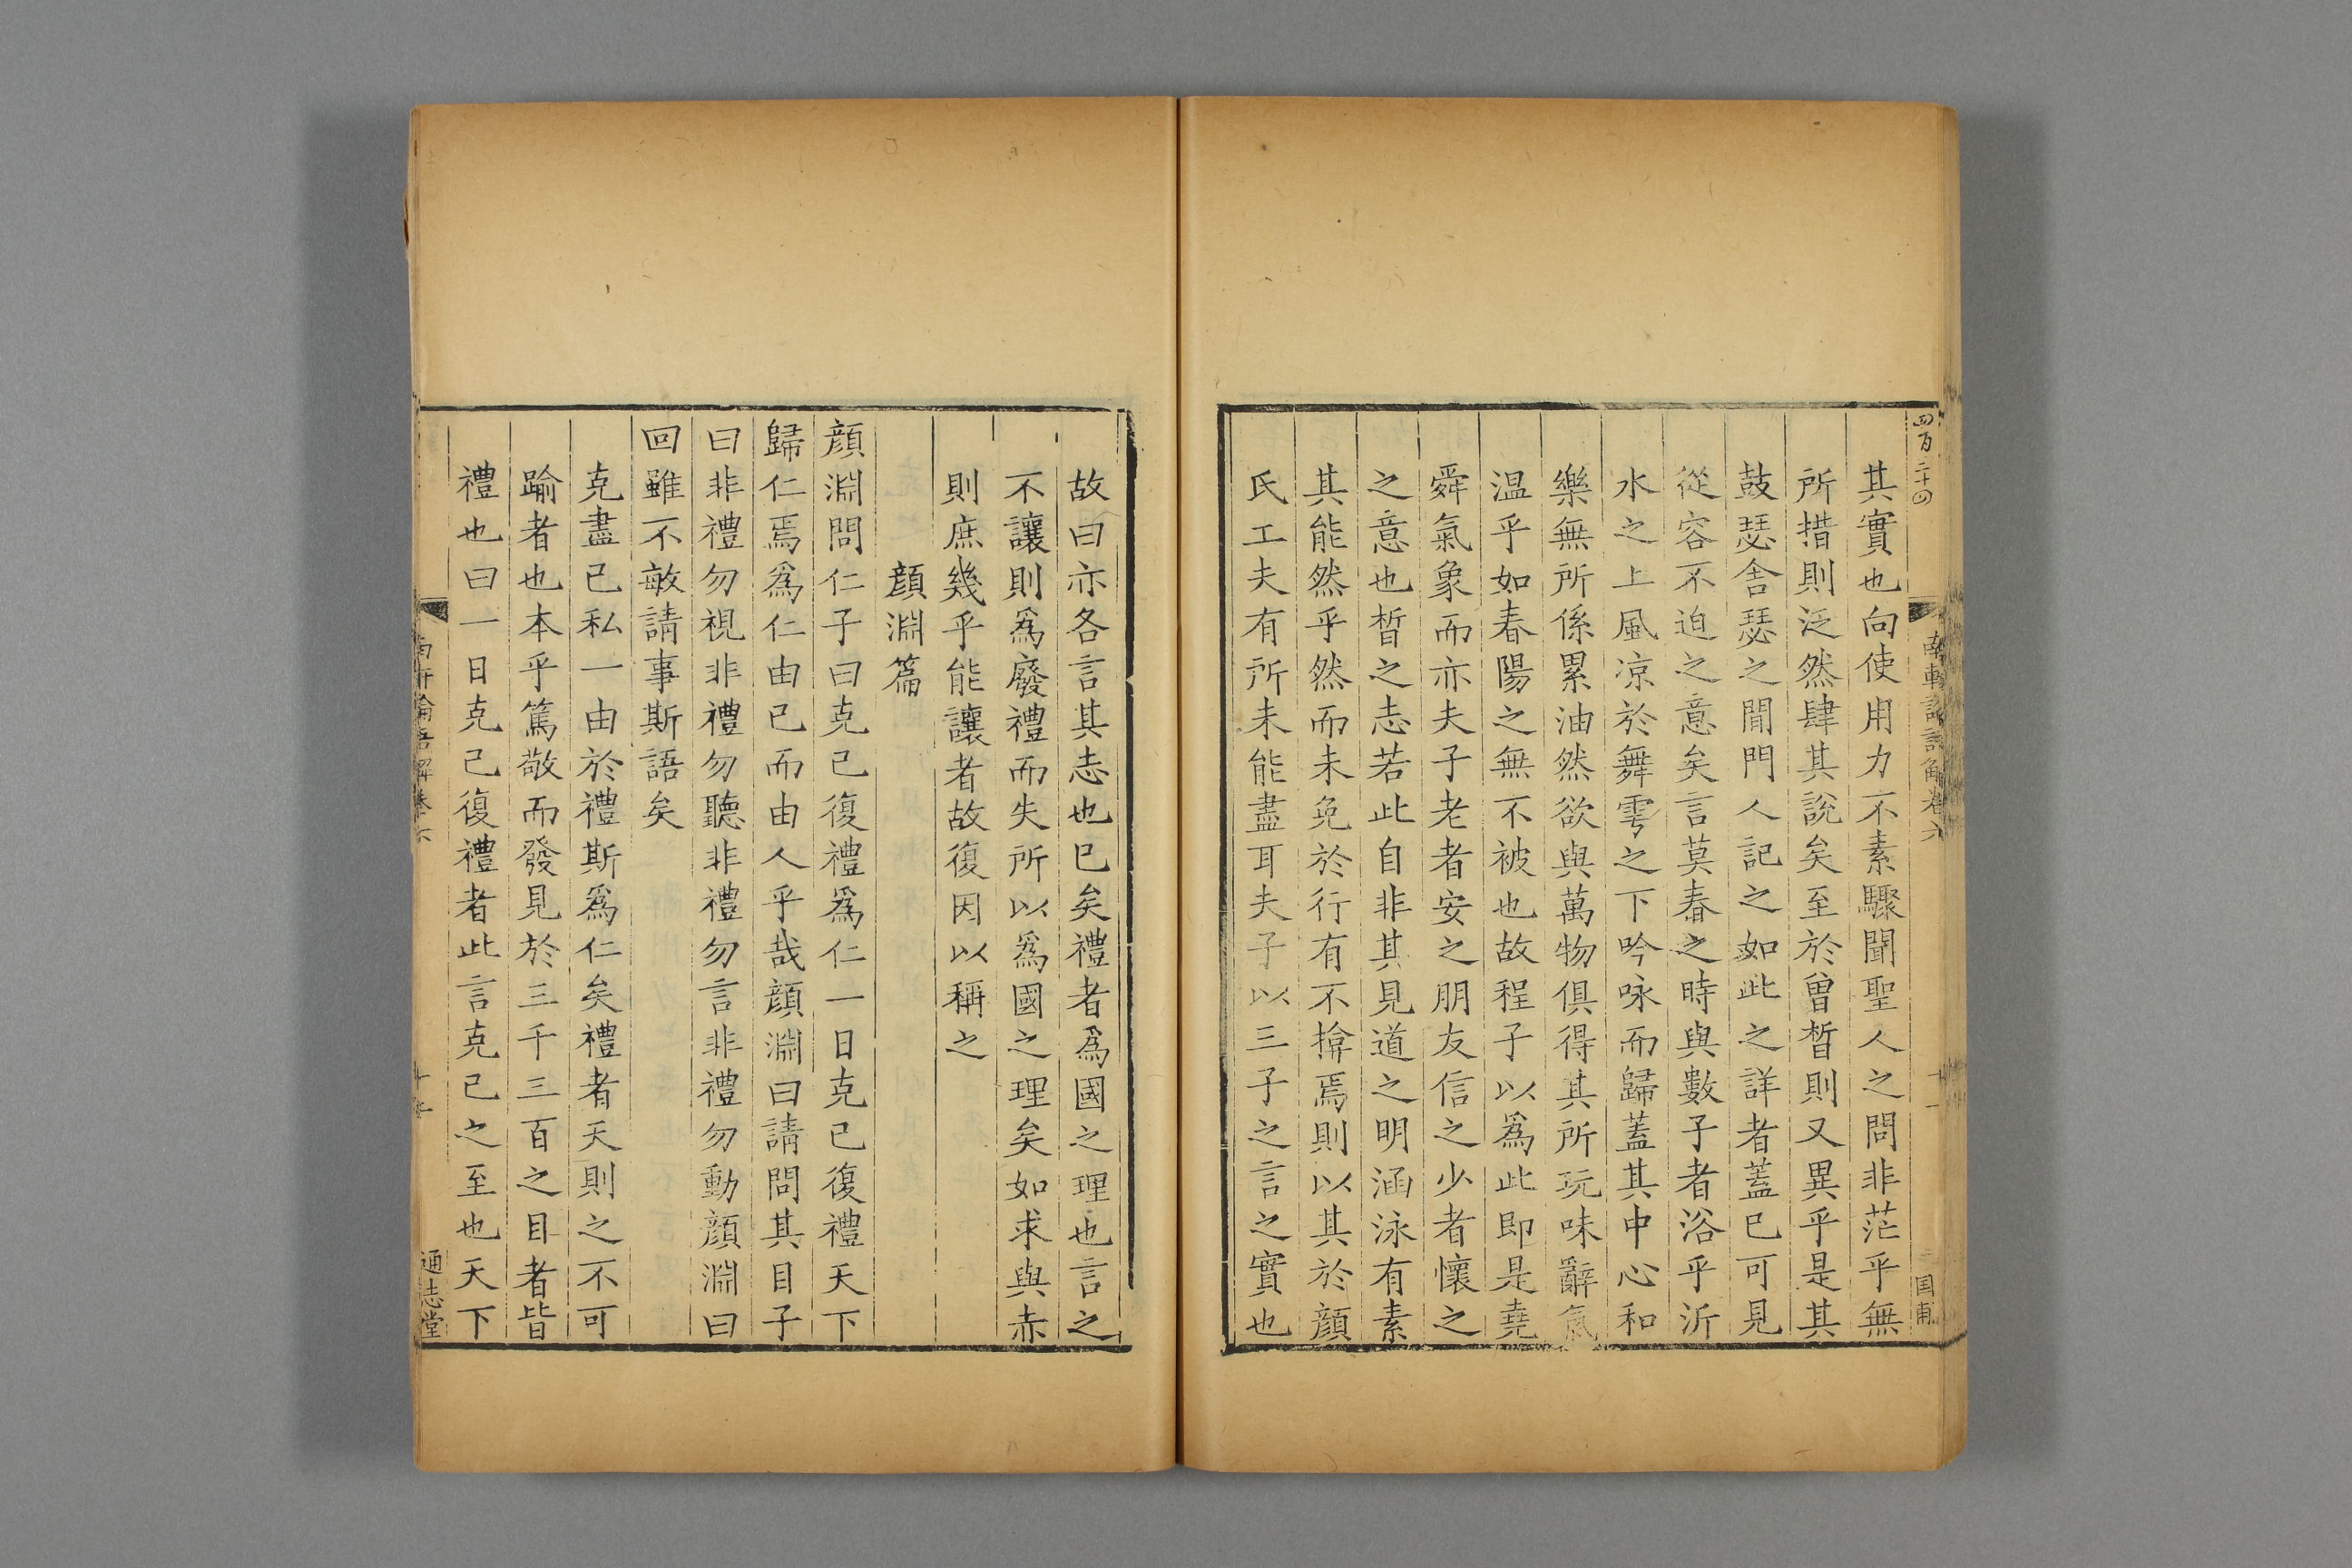 四百二十四
南軒論語解卷六
十一
国甫
其實也向使用力不素驟聞聖人之問非茫乎無
所措則泛然肆其說矣至於曾晳則又異乎是其
鼓瑟舍瑟之閒門人記之如此之詳者蓋已可見
從容不迫之意矣言莫春之時與數子者浴乎沂
水之上風凉於舞雩之下吟咏而歸蓋其中心和
樂無所係累油然欲與萬物俱得其所玩味辭氣
温乎如春陽之無不被也故程子以爲此即是堯
舜氣象而亦夫子老者安之朋友信之少者懷之
之意也晳之志若此自非其見道之明涵泳有素
其能然乎然而未免於行有不揜焉則以其於顏
氏工夫有所未能盡耳夫子以三子之言之實也
故曰亦各言其志也已矣禮者爲國之理也言之
不讓則爲廢禮而失所以爲國之理矣如求與赤
則庶幾乎能讓者故復因以稱之
顏淵篇
顏淵問仁子曰克己復禮爲仁一日克己復禮天下
歸仁焉爲仁由己而由人乎哉顏淵曰請問其目子
曰非禮勿視非禮勿聽非禮勿言非禮勿動顏淵曰
回雖不敏請事斯語矣
克盡己私一由於禮斯爲仁矣禮者天則之不可
踰者也本乎篤敬而發見於三千三百之目者皆
禮也曰一日克己復禮者此言克己之至也天下
南軒論語解卷六
通志堂